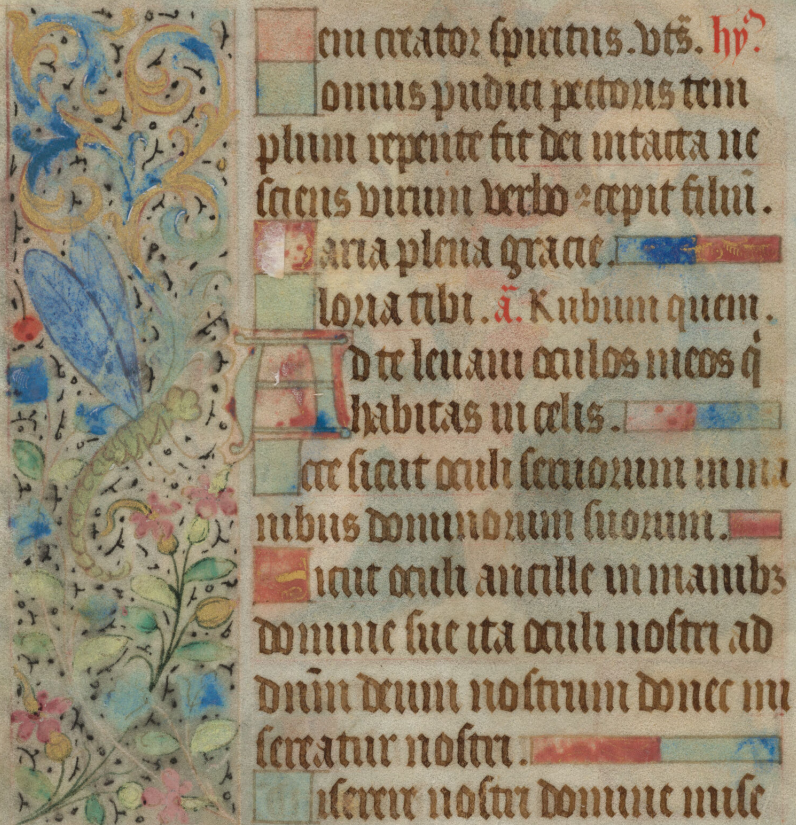 eni creator spiritus. vt s̄. hy̾.
omus pudici pectoris tem
plum repente fit dei intacta ne
sciens virum verbo ꝯcepit filiū.
aria plena gracie.
loria tibi. ā. Rubum quem.
Ad te leuaui oculos meos q̇
habitas in celis.
cce sicut oculi seruorum in ma
nibus dominorum suorum.
icut oculi ancille in manibꝫ
domine sue ita oculi nostri ad
dn̄m deum nostrum donec mi
sereatur nostri.
Miserere nostri domine mise